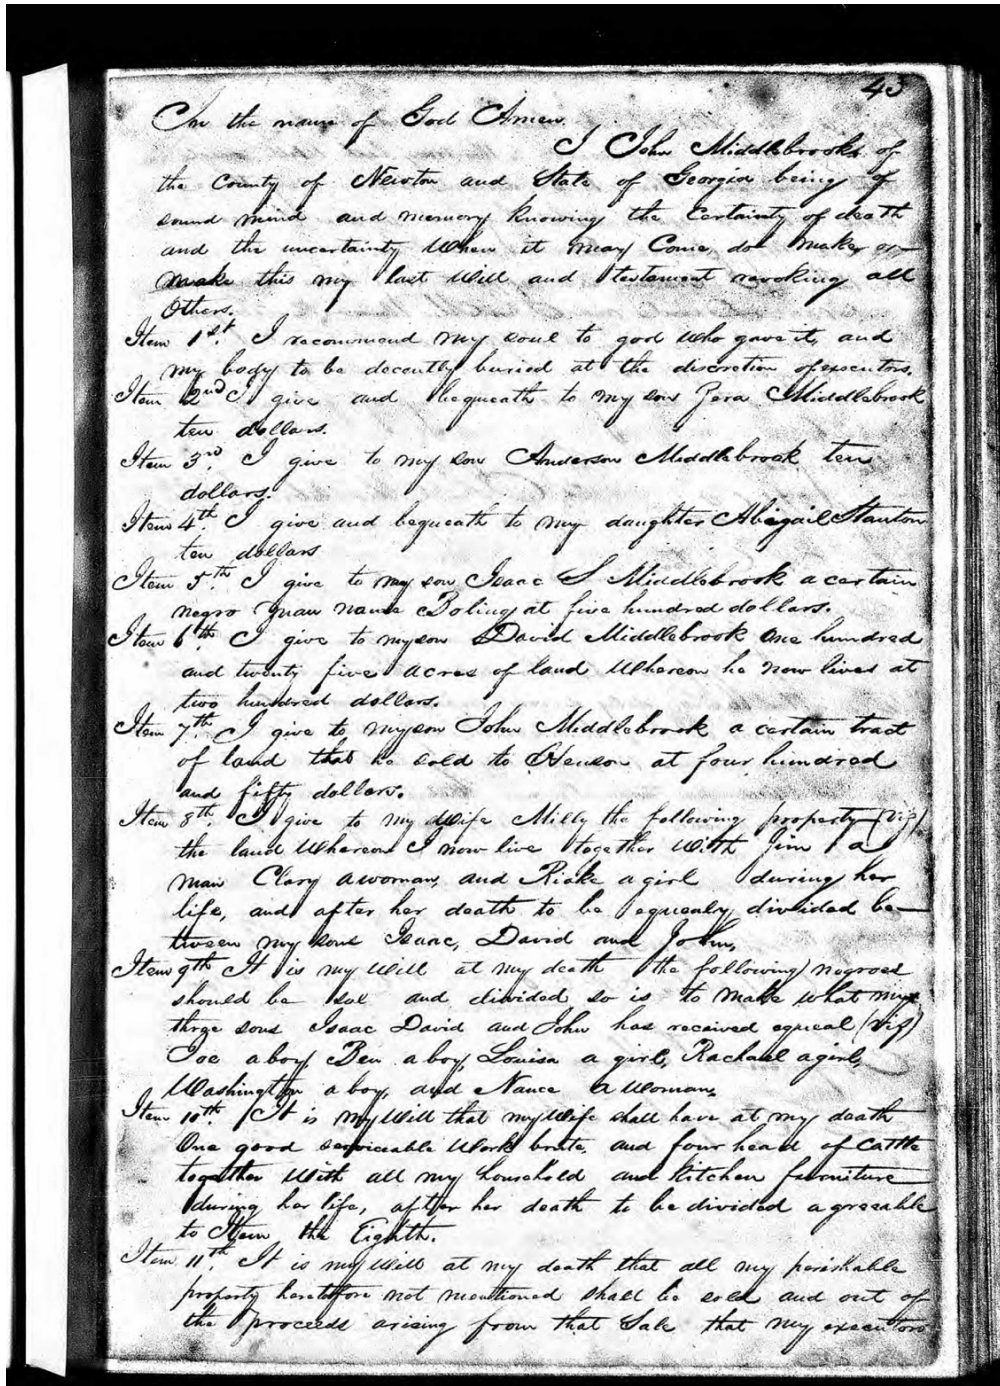 43
In the name of God Amen.
I John Middlebrooks of
the County of Newton and State of Georgia being of
sound mind and memory knowing the Certainty of death
and the uncertainty When it may Come, do make or
make this my last Will and testament revoking all
Others.
Item 1st. I recommend my soul to god who gave it, and
my body to be decently buried at the discretion of executors.
Item 2nd I give and bequeath to my son Zera Middlebrook
ten dollars.
Item 3rd. I give to my son Anderson Middlebrook ten
dollars.
Item 4th. I give and bequeath to my daughter Abigail Stanton
ten dollars
Item 5th I give to my son Isaac S Middlebrook a certain
negro man name Boling at five hundred dollars.
Item 6th. I give to my son David Middlebrook One hundred
and twenty five acres of land Whereon he now lives at
two hundred dollars.
Item 7th. I give to my son John Middlebrook a certain tract
of land that he sold to Henson at four hundred
and fifty dollars.
Item 8th. I give to my Wife Milly the following property (Viz)
the land Whereon I now live together With Jim a
man Clary a woman, and a girl during her
life, and after her death to be equealy divided be-
tween my sons Isaac, David and John,
Item 9th It is my Will at my death the following negroes
should be sol and divided so is to make what my
three sons Isaac David and John has received equeal (Viz)
Joe a boy, Ben a boy, Louisa a girl, Rachael a girl,
Washington a boy, and Nance a Woman,
Item 10th. It is my Will that my Wife shall have at my death
One good serviceable Work brute, and four head of Cattle
together With all my household and Kitchen furniture
during her life, after her death to be divided agreeable
to Item the Eighth.
Item 11th. It is my Will at my death that all my perishable
property heretofore not mentioned shall be sold and out of
the proceeds arising from that Sale that my executors